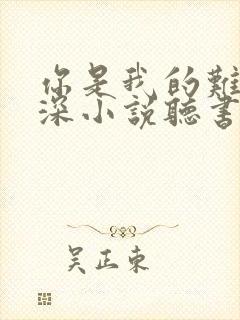 你是我的難
深小説聽書
吴正東